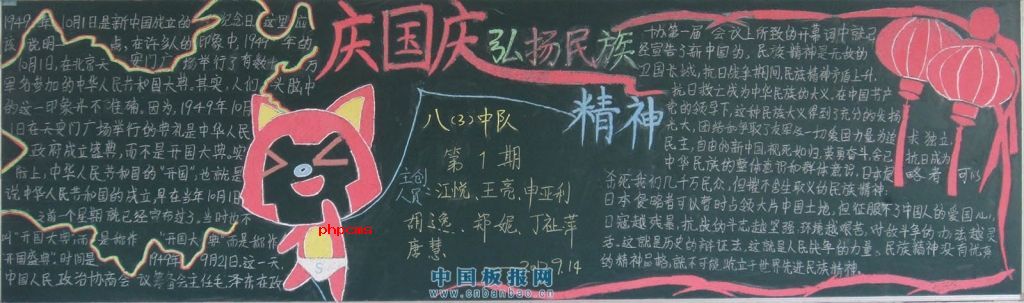 庆国庆弘扬民族
精神
1949年10月1日是新中国成立的一纪念日。这里应
该说明一点，在许多人的印象中，1949年的
10月1日，在北京天安门广场举行了有数十万
军民参加的中华人民共和国大典。其实，人们头脑中
的这一印象并不准确。因为，1949年10月
1日在天安门广场举行的典礼是中华人民
政府成立盛典，而不是开国大典。实
际上，中华人民共和国的“开国”，也就是
说中华人民共和国的成立，早在当年10月1日
之前一个星期就已经宣布过了。当时也不
叫“开国大典”而是
开国盛典”。时间是1949年9月21日。这一天，
中国人民政治协商会议筹备会主任毛泽东在政
phpcms
八(3)中队
第1期
主创
人员：江悦、王亮、申亚利
胡逸、郑妮、丁祉萍
唐慧
2009.9.14
中国板报网
www.cnbanbao.cn
协第一届会议上所致的开幕词中就已
经宣告了新中国的，民族精神是无敌的
卫国长城，抗日战争期间，民族精神
抗日救亡成为中华民族的大义，在中国共产
党的领导下，这种民族大义得到了充分的发扬
光大，团结和争取了友军及一切爱国力量为追求独立，
民主，自由的新中国，视死如归，英勇奋斗，舍己抗日成为
中华民族的整体意识和群体意识。日本侵略者可以
杀死我们几千万民众，但摧不垮生取义的民族精神；
日本侵略者可以暂时占领大片中国土地，但征服不了中国人的爱国心，
日寇越残暴，抗战的斗志越坚强，环境越艰苦，对敌斗争的办法越灵
活。这就是历史的辩证法，这就是人民战争的力量。民族精神没有优秀
的精神品格，就不可能屹立于世界先进民族精神。